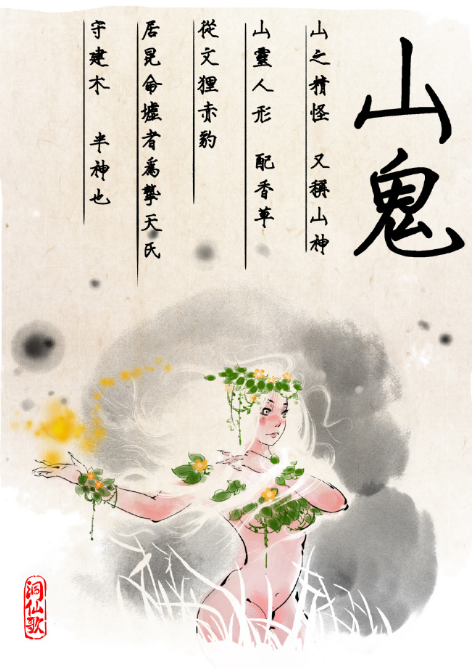 山鬼
山之精怪 又稱山神
山靈人形 配香草
從文狸赤豹
居昆侖墟者爲掌天氏
守建木 半神也
洞仙歌